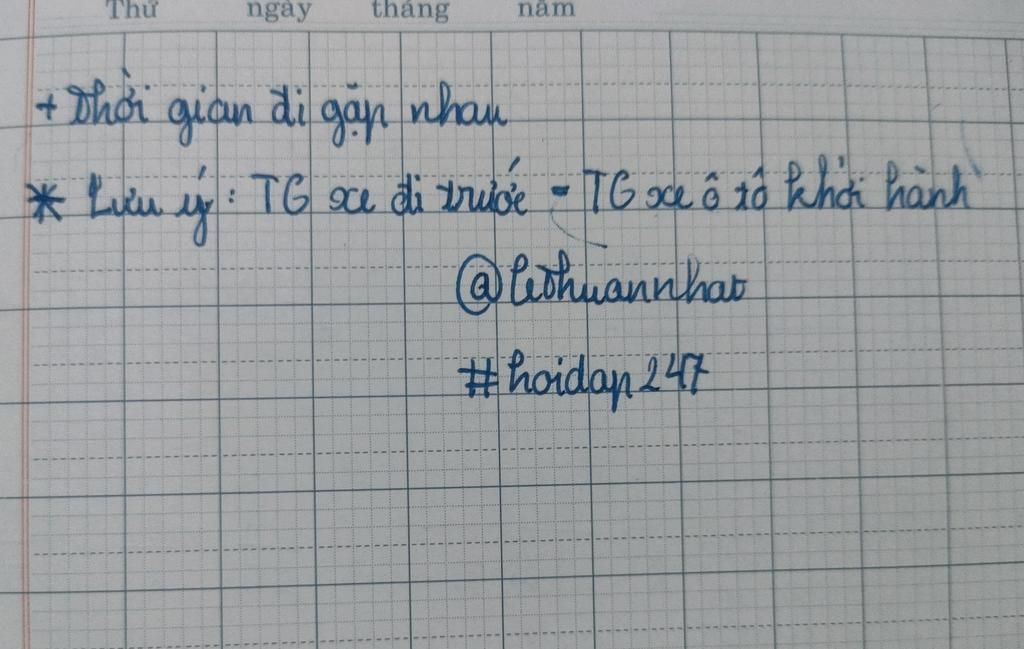 Thứ ngày tháng năm
+ Thời gian đi gặp nhau
* Lưu ý: TG xe đi trước - TG xe ô tô khởi hành
@lethuannhat
#hoidap247